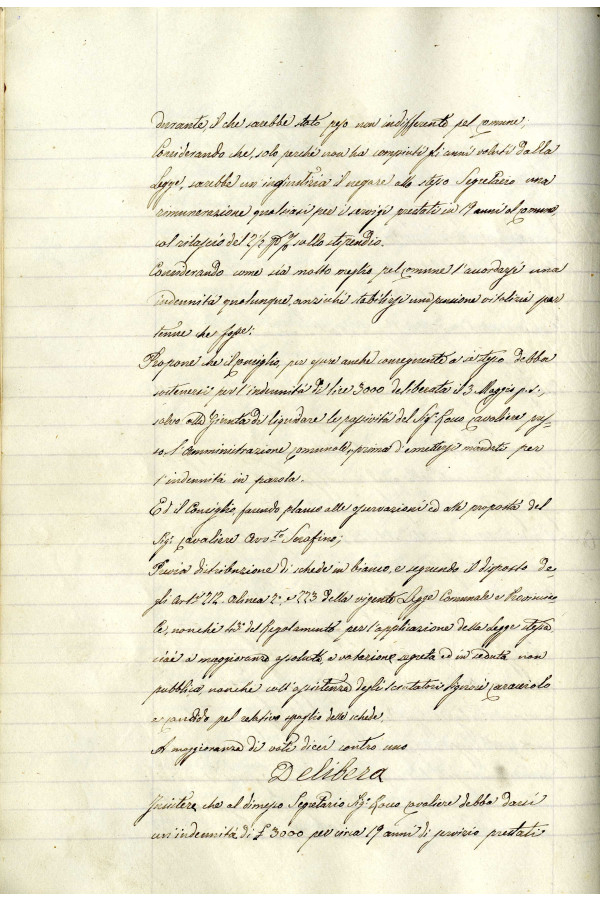 durante, il che sarebbe stato peso non indifferente pel Comune;
Considerando che, solo perché non ha compiuti gli anni voluti dalla
Legge, sarebbe un ingiustizia il negare allo stesso Segretario una
rimunerazione qualsiasi per i servigi prestati in 19 anni al Comune,
col rilascio del 2½ p% sullo stipendio.
Considerando come sia molto meglio pel Comune l'accordarsi una
indennità qualunque, anziché stabilirsi una pensione vitalizia per
tenue che fosse:
Propone che il Consiglio, per essere anche conseguente a se stesso debba
sostenersi per l'indennità di lire 3000 deliberata il 3 Maggio p.s.,
salvo alla Giunta di liquidare le passività del Sig. Cavaliere pres-
so l'Amministrazione Comunale, prima d'emettersi mandato per
l'indennità in parola.
Ed il Consiglio, facendo plauso alle osservazioni ed alle proposte del
Sig. Cavaliere Avv.to Serafino;
Previa distribuzione di schede in bianco, e seguendo il disposto de-
gli Art.li 212 alinea 2°, e 223 della vigente Legge Comunale e Provincia-
le, nonché del Regolamento per l'applicazione della legge stessa
cioè a maggioranza assoluta, a votazione segreta ed in seduta non
pubblica, nonché coll'assistenza degli scrutatori Signori Caracciolo
e Candido pel relativo spoglio delle schede.
A maggioranza di voti dieci contro uno
Delibera
Insistere, che al dimesso Segretario Sig. Cavaliere debba darsi
un'indennità di £ 3000 per circa 19 anni di servizio prestati